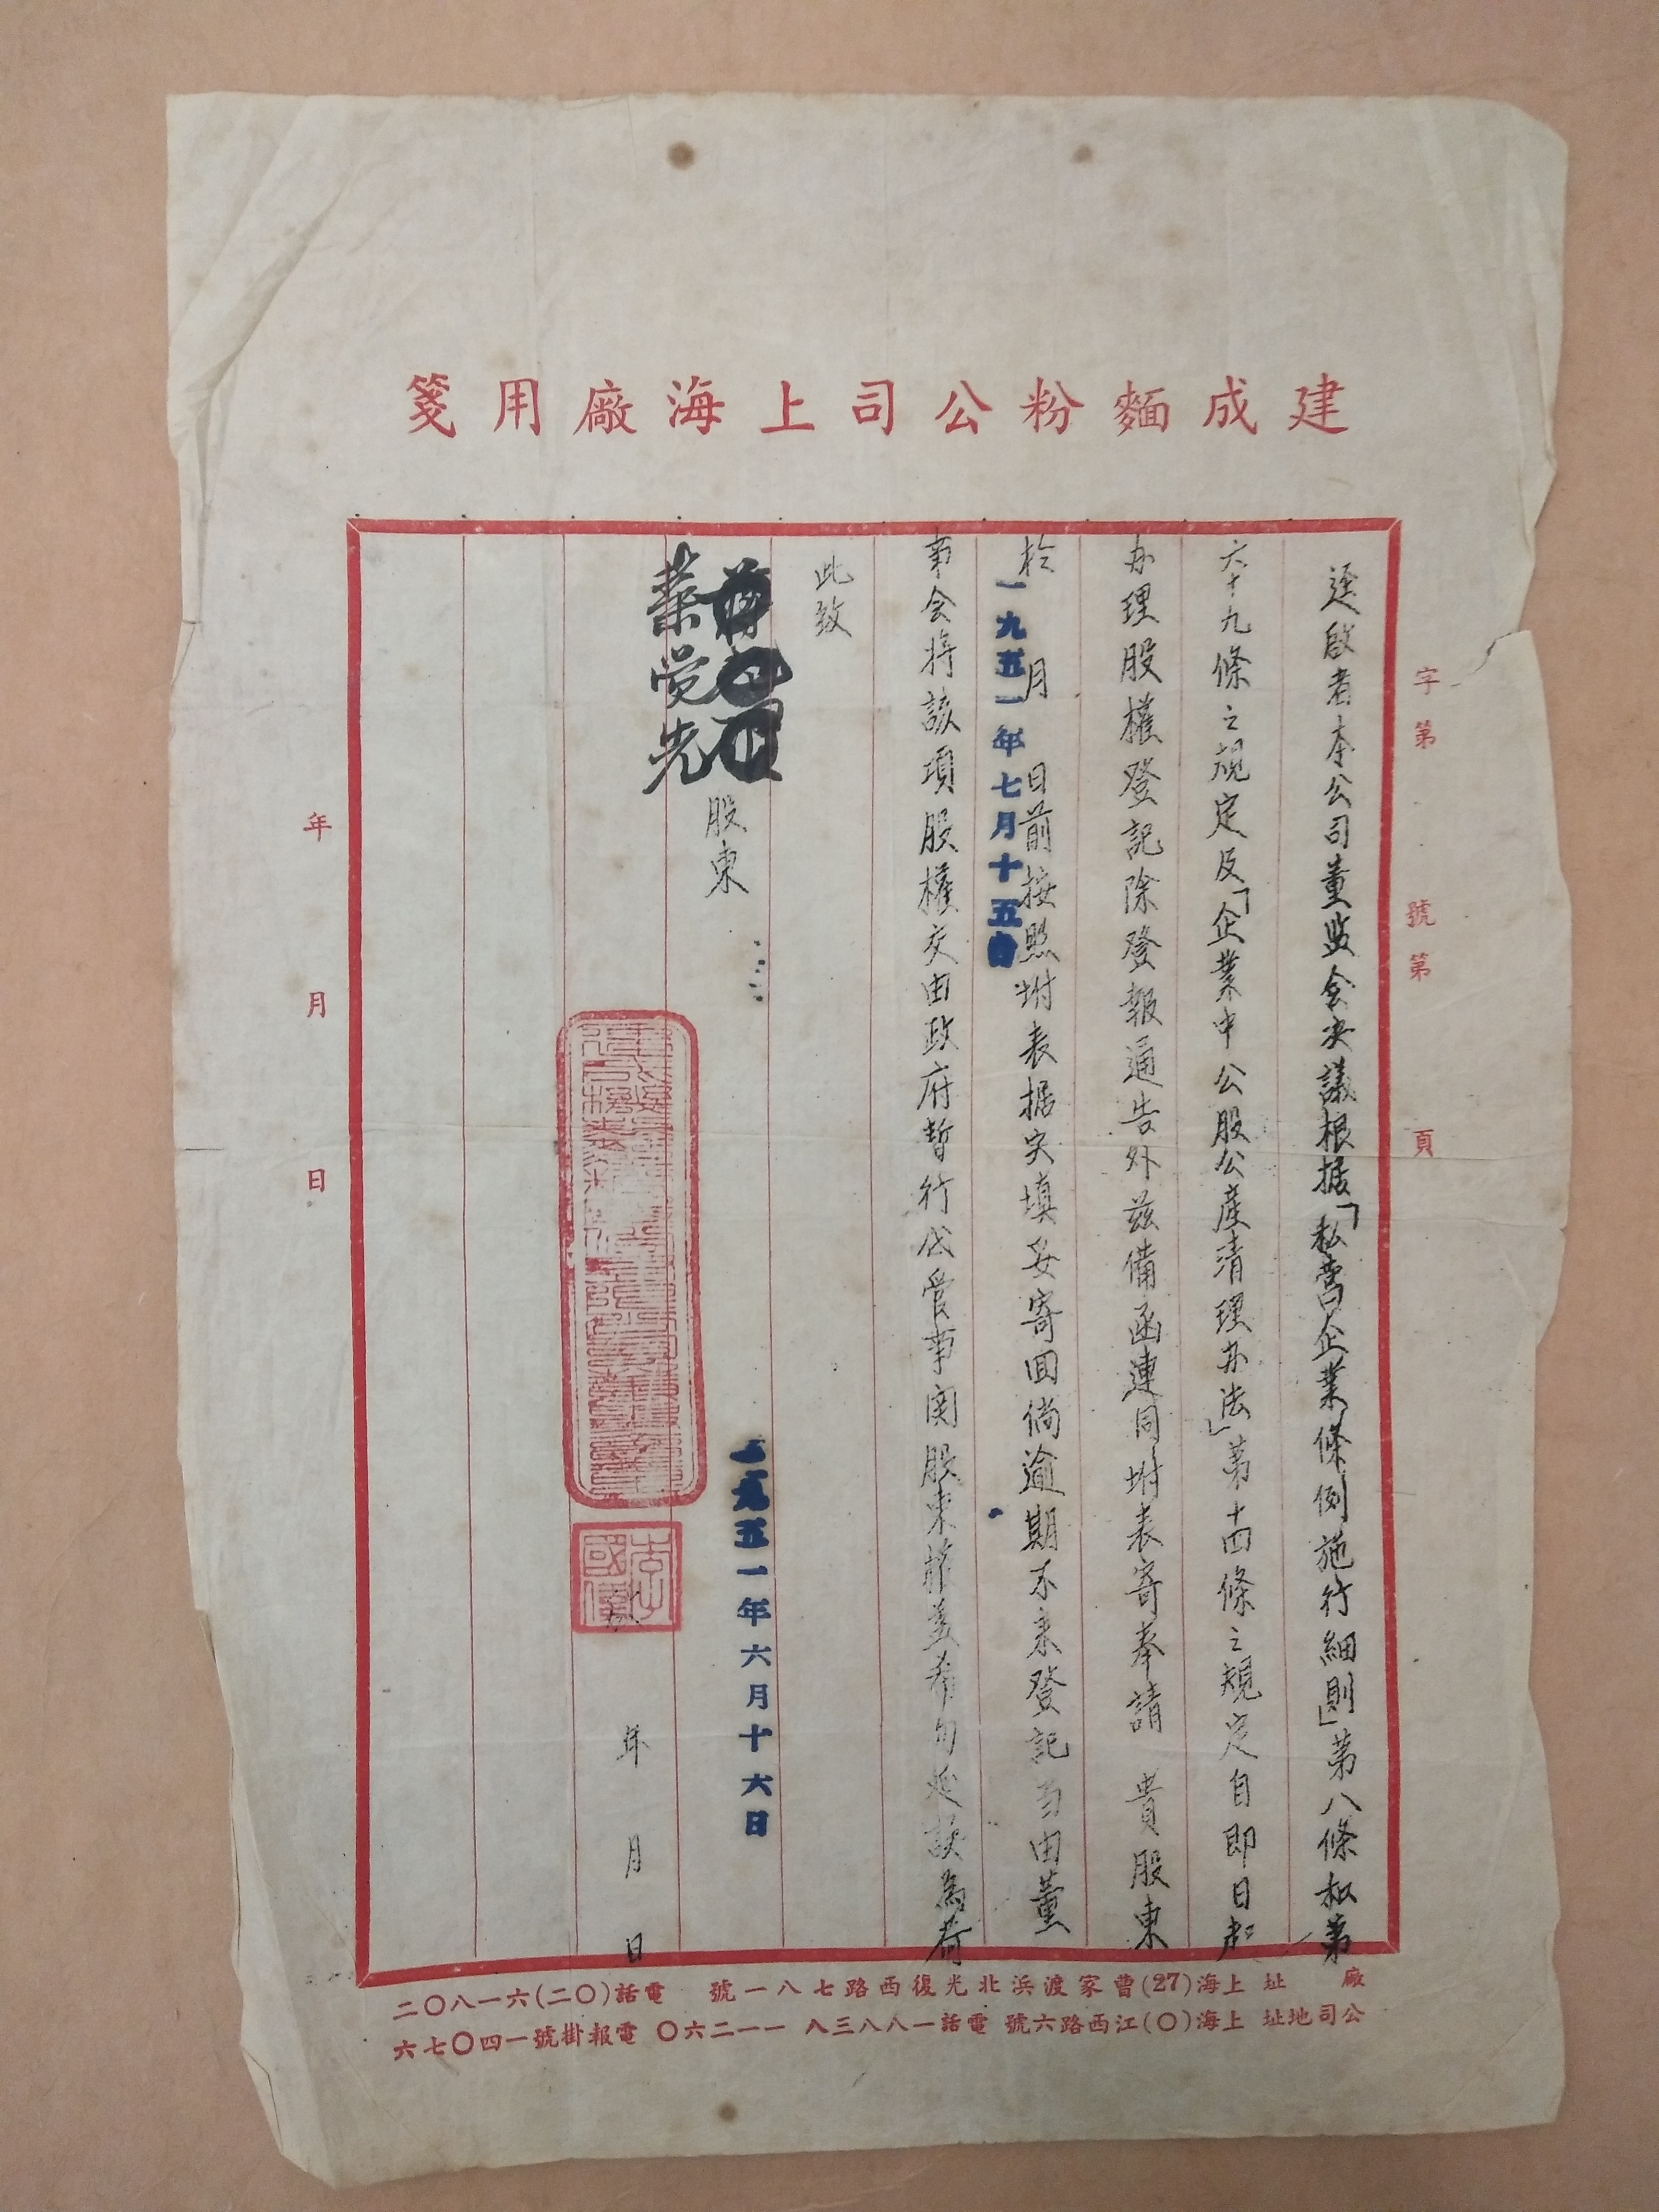 建成麵粉公司上海廠用箋
字第　號第　頁
逕啟者本公司董监会决議根据「私营企業條例施行細則」第八條和第
六十九條之規定及「企業中公股公產清理办法」第十四條之規定自即日起
办理股權登記除登報通告外兹備函連同坿表寄奉請　貴股東
於　月　日前按照坿表据实填妥寄回倘逾期不来登記当由董
一九五一年七月十五日
事会将該項股權交由政府暫行代管事関股東權益希勿延誤為荷
此致
股東
葉受光
一九五一年六月十六日
李國偉
年　月　日
年　月　日
廠址　上海(27)曹家渡浜北光復西路七八一號　電話(〇二)六一八〇二
公司地址　上海(〇)江西路六號　電話一八八三八　一一二六〇　電報掛號一四〇七六